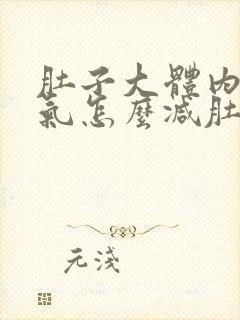 肚子大體內
氣怎麼減肚
元淺